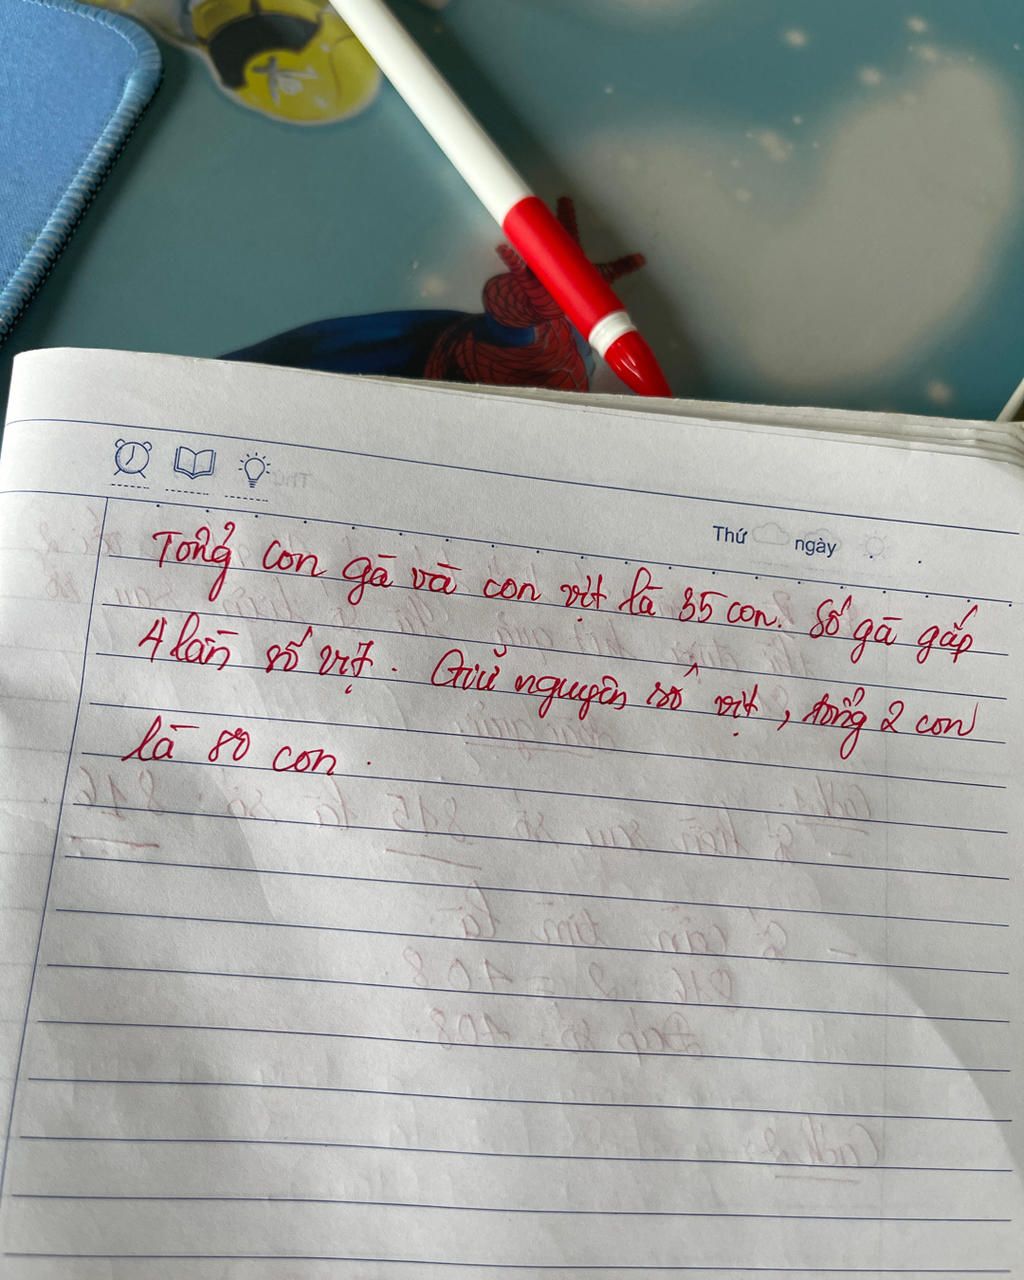 Thứ ngày
Tổng con gà và con vịt là 35 con. Số gà gấp
4 lần số vịt. Giữ nguyên số vịt, tổng 2 con
là 80 con.